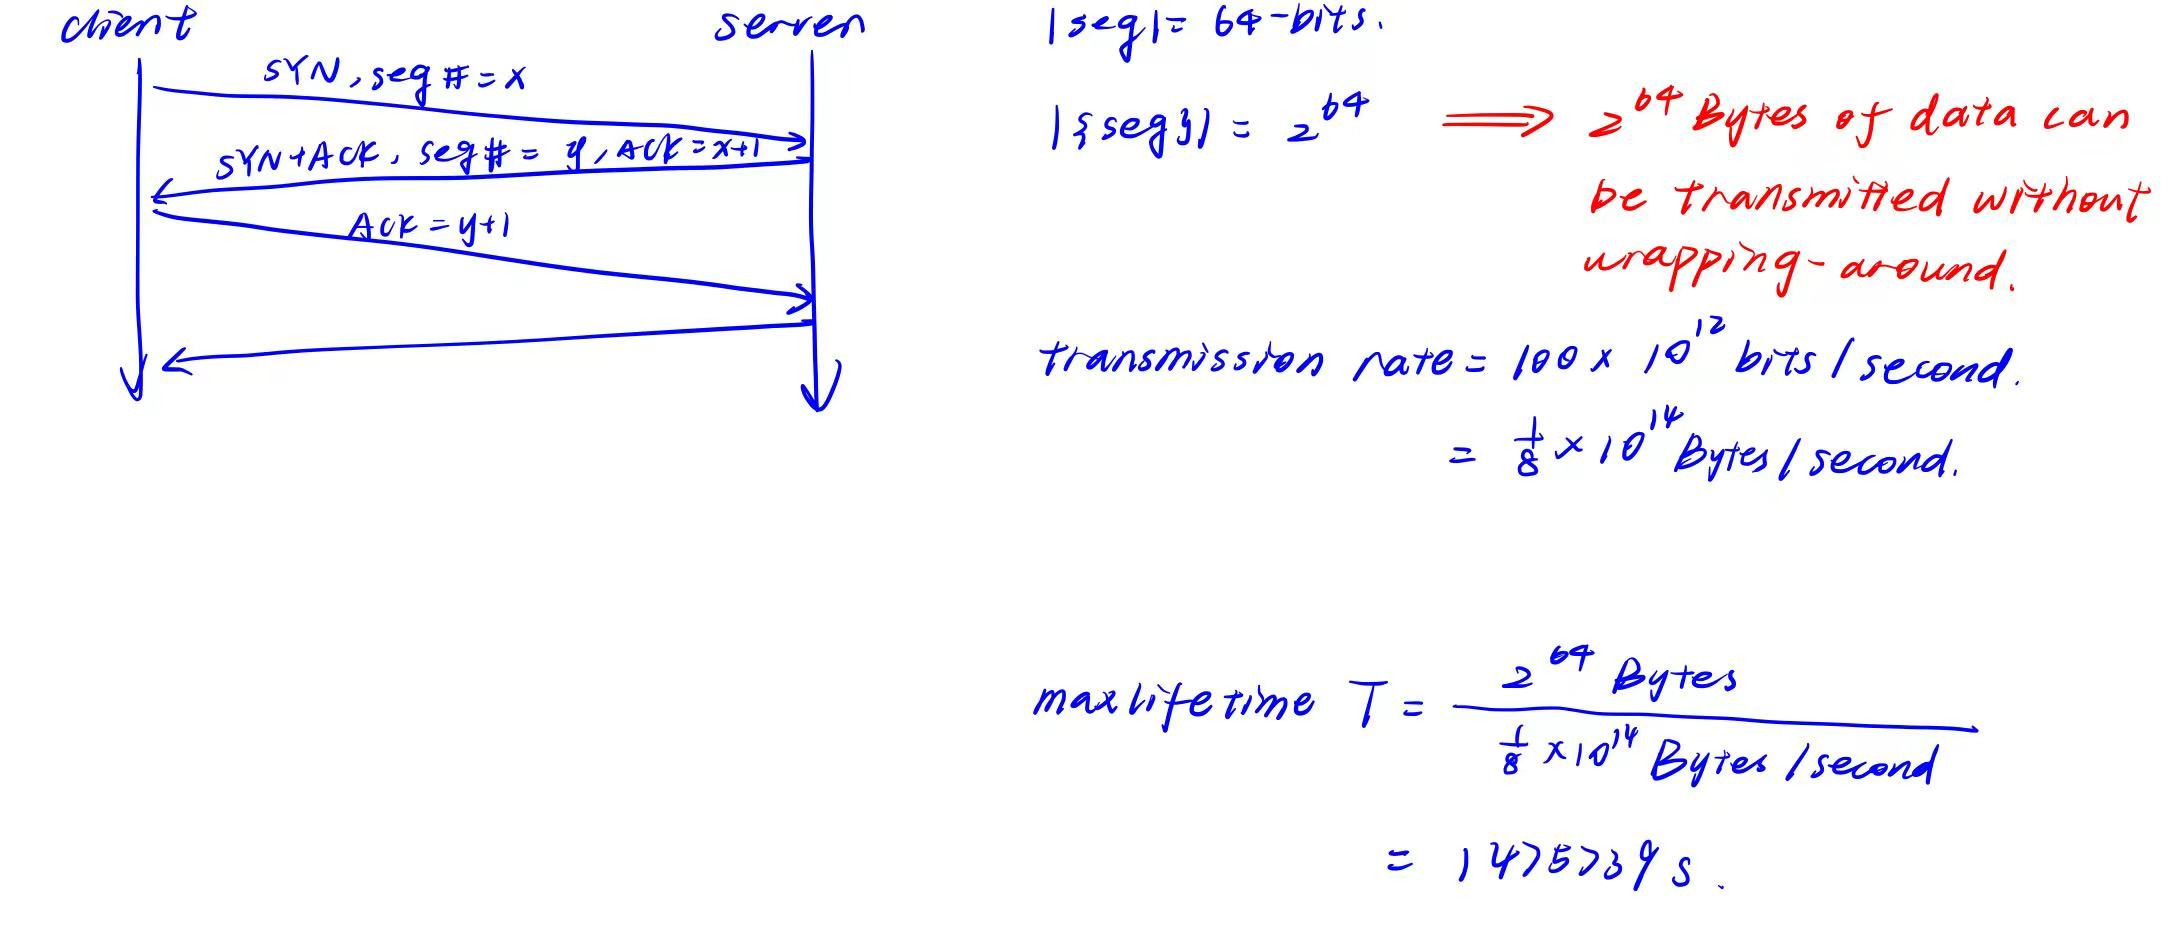 client server
SYN, seg # = x
SYN+ACK, seg# = y, ACK = x+1
ACK = y+1
|seg| = 64-bits.
|{seg}| = 2^64 ⟹ 2^64 Bytes of data can
be transmitted without
wrapping-around.
transmission rate = 100 × 10^12 bits / second.
= 1/8 × 10^14 Bytes / second.
max lifetime T = 2^64 Bytes
1/8 × 10^14 Bytes / second
= 1475739 s.